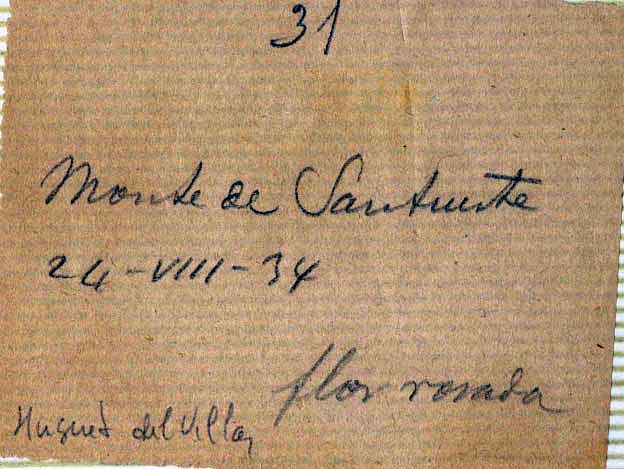 31
Monte de Santuste
24-VIII-34
flor rosada
Huguet del Villar